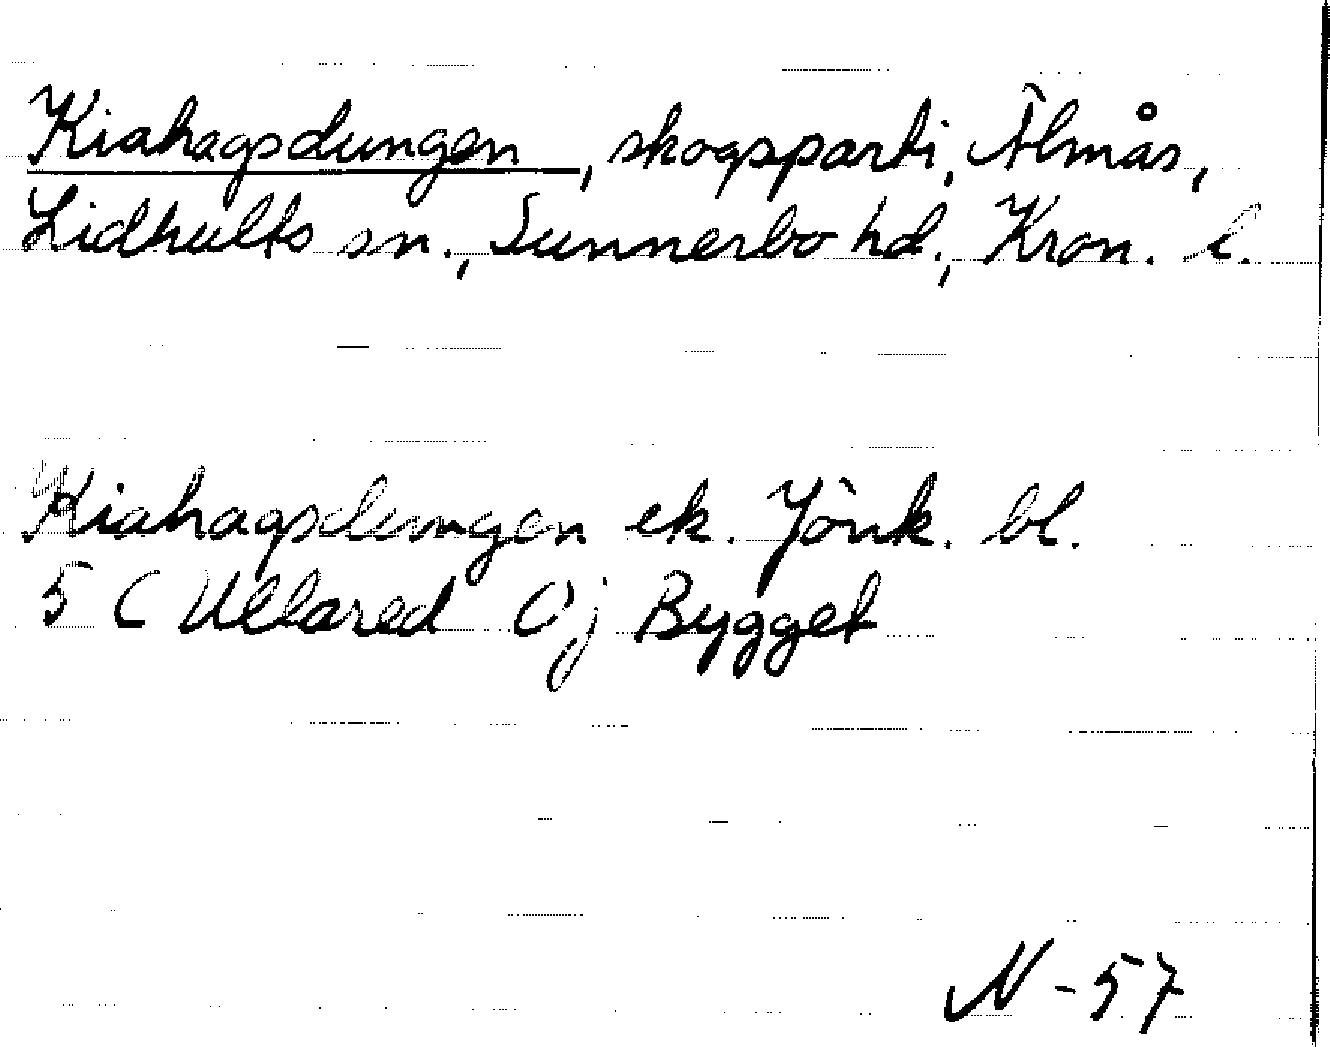 Kiahagsdungen, skogsparti, Älmås,
Lidhults sn., Sunnerbo hd., Kron. l.
Kiahagsdungen ek. Jönk. bl.
5 C Ullared 0j Bygget
N-57